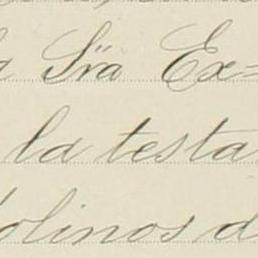 Sra Ex=
la testa
olinos d